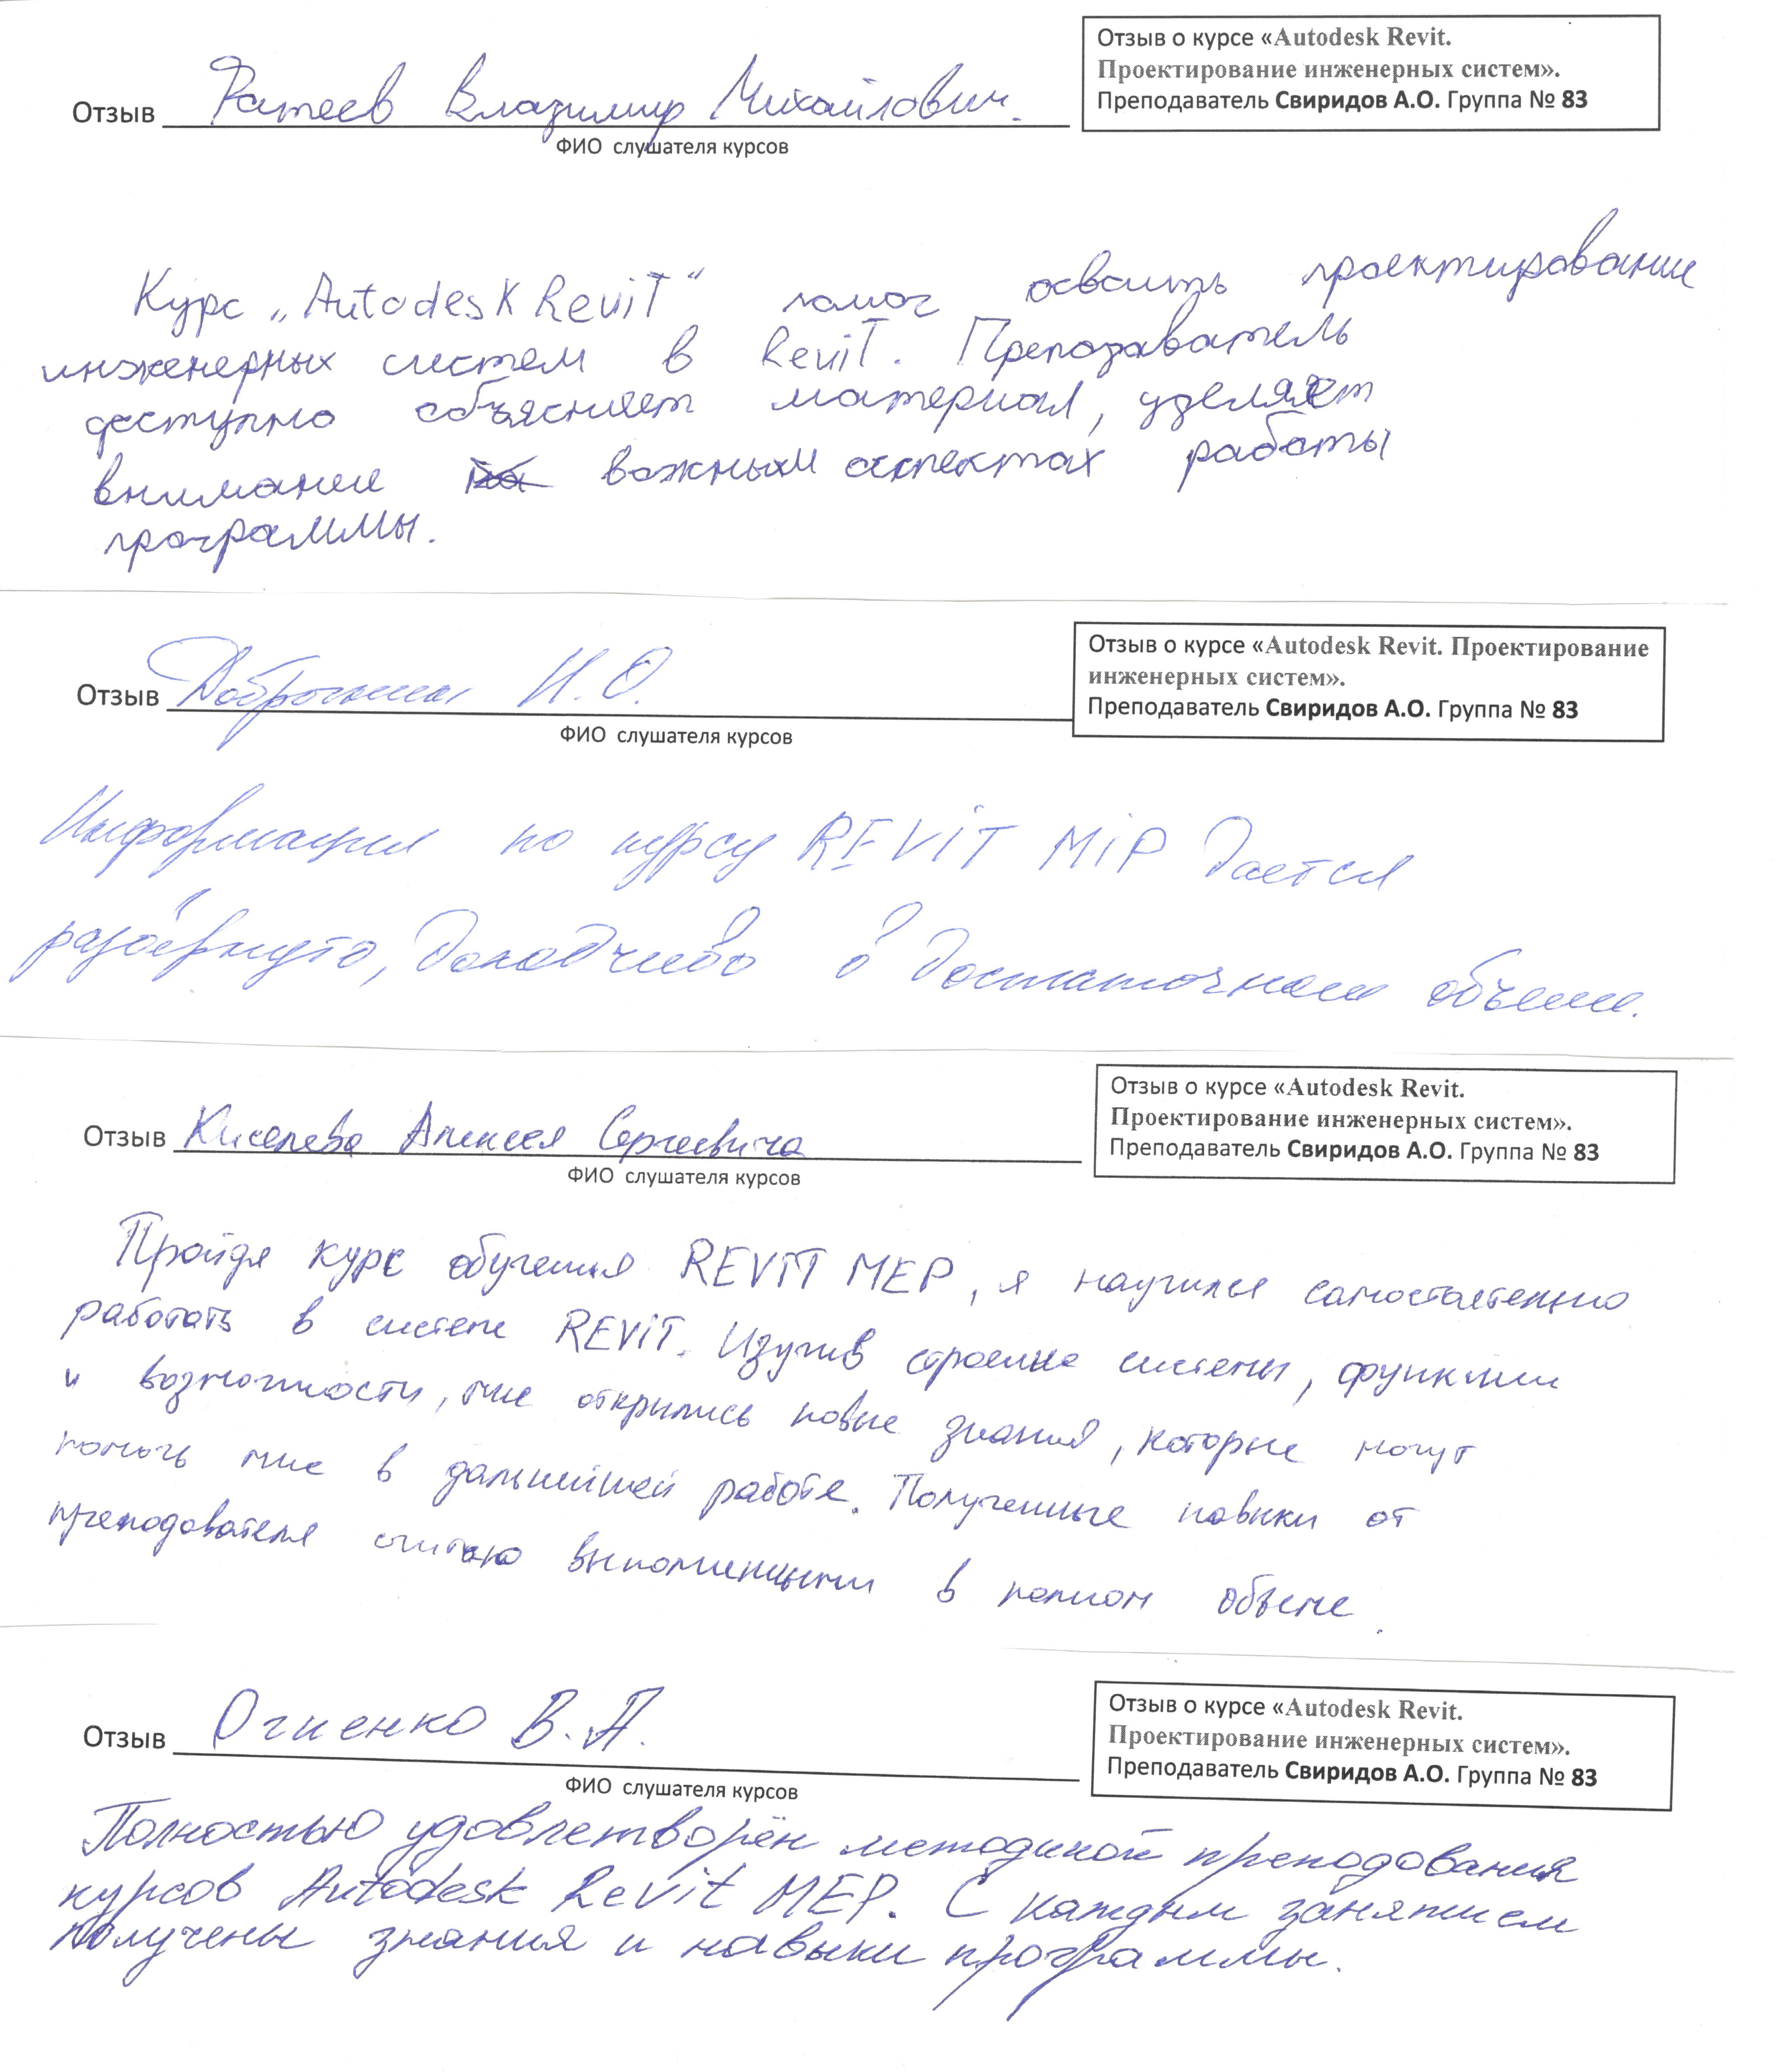 Отзыв о курсе «Autodesk Revit.
Проектирование инженерных систем».
Преподаватель Свиридов А.О. Группа № 83
Отзыв Фатеев Владимир Михайлович.
ФИО слушателя курсов
Курс „Autodesk Revit“ помог освоить проектирование
инженерных систем в Revit. Преподаватель
доступно объясняет материал, уделяет
внимание важным аспектах работы
программы.
Отзыв о курсе «Autodesk Revit. Проектирование
инженерных систем».
Преподаватель Свиридов А.О. Группа № 83
Отзыв И.О.
ФИО слушателя курсов
Информация по курсу REVIT MIP даётся
развёрнуто, доходчиво в достаточном объеме.
Отзыв о курсе «Autodesk Revit.
Проектирование инженерных систем».
Преподаватель Свиридов А.О. Группа № 83
Отзыв Киселева Алексея Сергеевича
ФИО слушателя курсов
Пройдя курс обучения REVIT MEP, я научился самостоятельно
работать в системе REVIT. Изучив строение системы, функции
и возможности, мне открылись новые знания, которые могут
помочь мне в дальнейшей работе. Полученные навыки от
преподователя считаю выполненными в полном объеме.
Отзыв о курсе «Autodesk Revit.
Проектирование инженерных систем».
Преподаватель Свиридов А.О. Группа № 83
Отзыв Огиенко В.П.
ФИО слушателя курсов
Полностью удовлетворён методикой преподования
курсов Autodesk Revit MEP. С каждым занятием
получены знания и навыки программы.